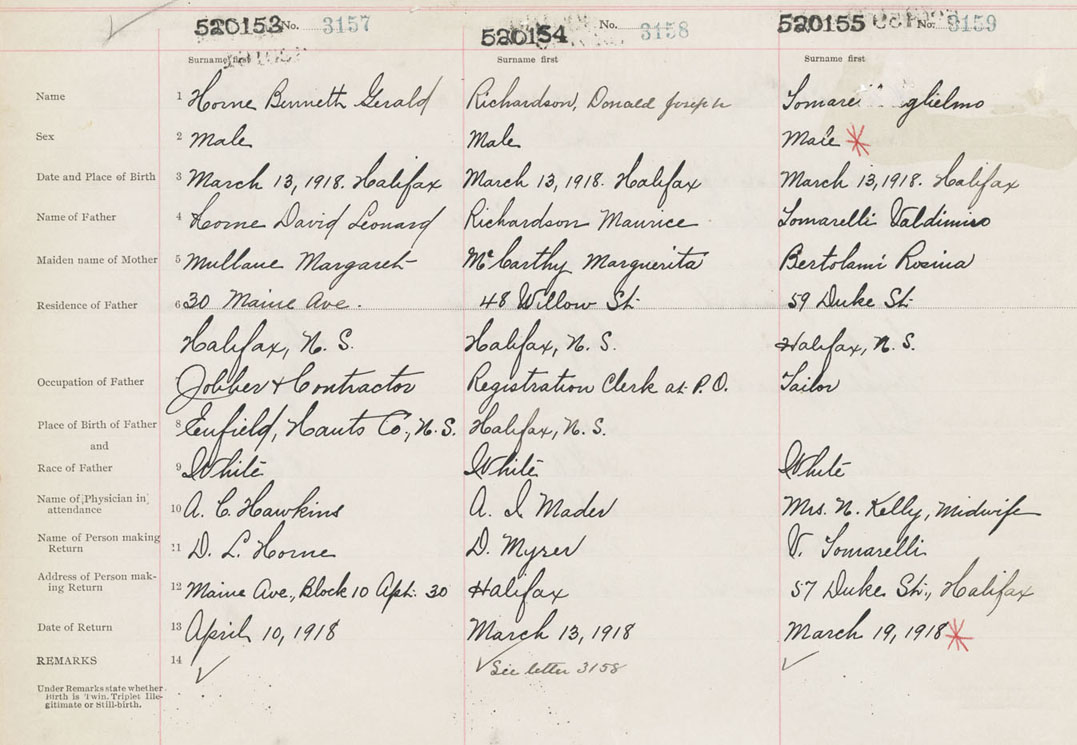 520153 No. 3157 520154 No. 3158 520155 No. 3159
Surname first Surname first Surname first
Name 1 Horne Benneth Gerald Richardson, Donald Joseph Tomare glielmo
Sex 2 Male Male Male
Date and Place of Birth 3 March 13, 1918. Halifax March 13, 1918. Halifax March 13, 1918. Halifax
Name of Father 4 Horne David Leonard Richardson Maurice Tomarelli Valdimiro
Maiden name of Mother 5 Mullane Margaret McCarthy Marguerita Bertolami Rosina
Residence of Father 6 30 Maine Ave. 48 Willow St. 59 Duke St.
Halifax, N. S. Halifax, N. S. Halifax, N. S.
Occupation of Father Jobber & Contractor Registration Clerk at P. O. Tailor
Place of Birth of Father 8 Enfield, Hants Co., N. S. Halifax, N. S.
and
Race of Father 9 White White White
Name of Physician in
attendance 10 A. C. Hawkins A. I. Mader Mrs. N. Kelly, Midwife
Name of Person making
Return 11 D. L. Horne D. Myrer V. Tomarelli
Address of Person mak-
ing Return 12 Maine Ave., Block 10 Apt. 30 Halifax 57 Duke St., Halifax
Date of Return 13 April 10, 1918 March 13, 1918 March 19, 1918
REMARKS 14 See letter 3158
Under Remarks state whether
Birth is Twin, Triplet Ille-
gitimate or Still-birth.